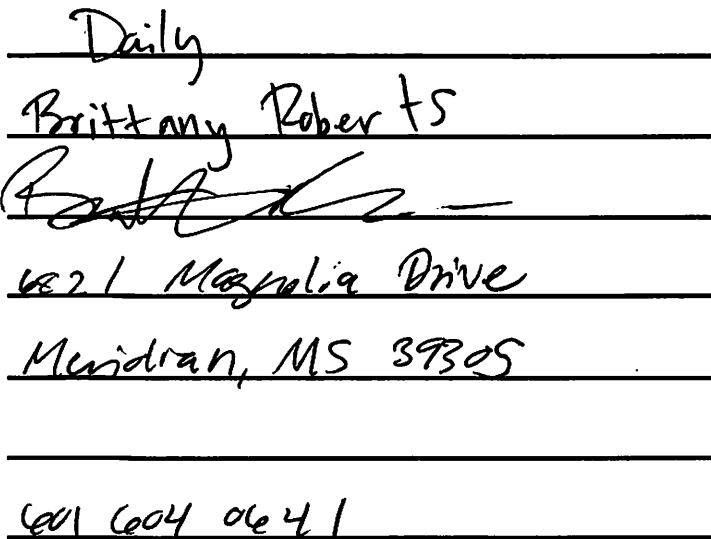 Daily
Brittany Roberts
6821 Magnolia Drive
Meridian, MS 39305
601 604 0641